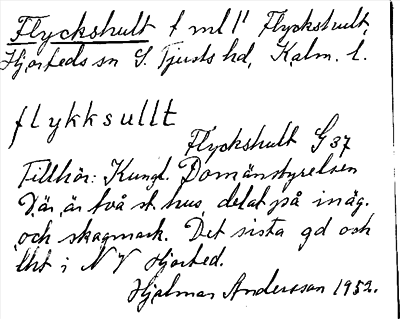 Flyckshult t ml 1¹ Flyckshult,
Hjorteds sn S. Tjusts hd, Kalm. l.
flykksullt
Flyckshult G 37
Tillhör: Kungl. Domänstyrelsen
Där är två st hus, delat på inäg.
och skogmark. Det sista gd och
lht i NV Hjorted.
Hjalmar Andersson 1952.